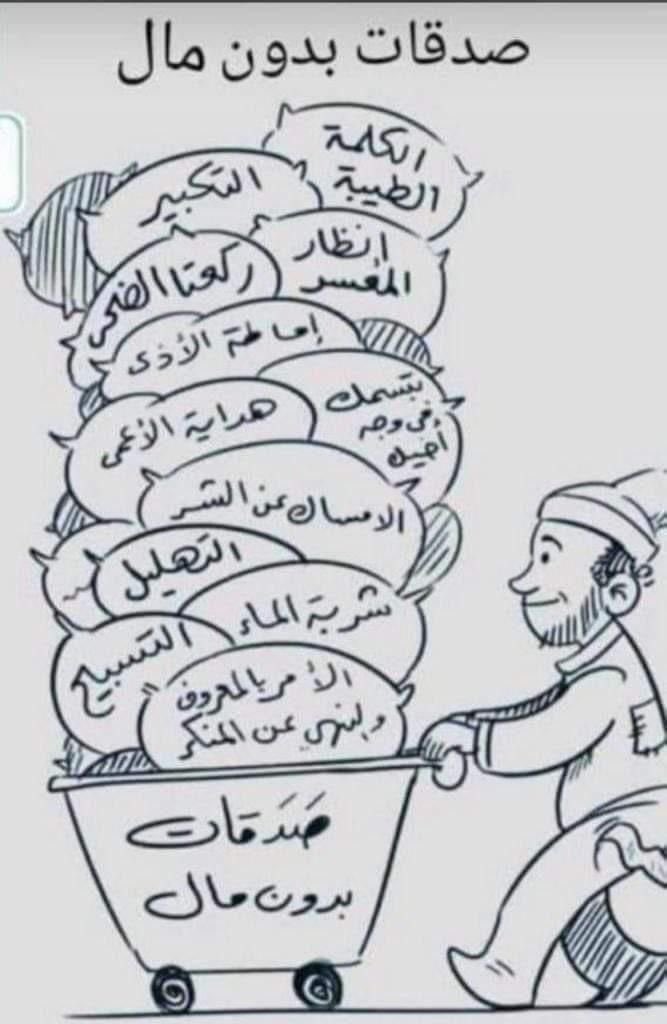 صدقات بدون مال
الكلمة
الطيبة
التكبير
إنظار
المعسر
ركعتا الضحى
إماطة الأذى
بتسمك
في وجه
أخيك
هداية الأعمى
الامساك عن الشر
التهليل
شربة الماء
التسبيح
الأمر بالمعروف
والنهي عن المنكر
صَدَقات
بدون مال